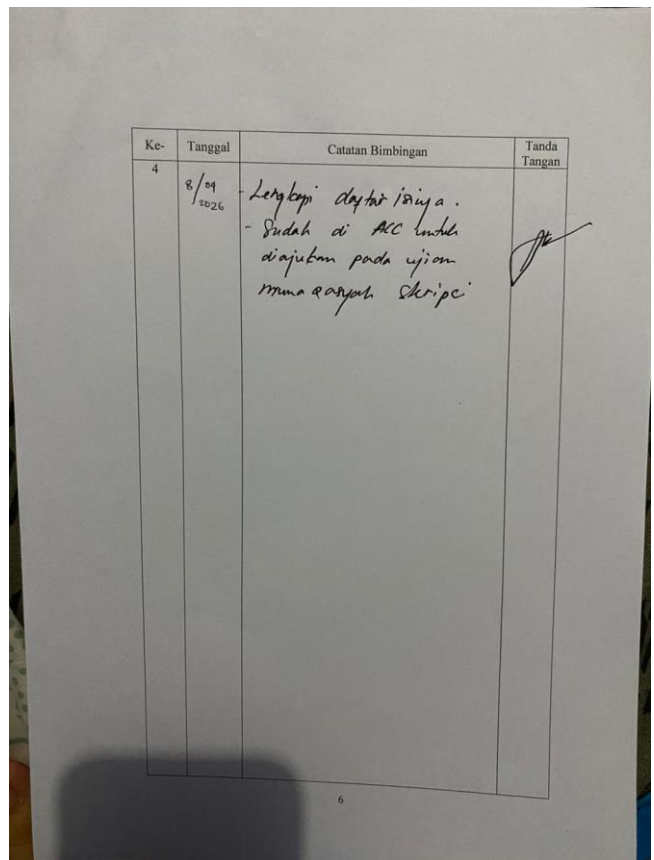 Ke- Tanggal Catatan Bimbingan Tanda Tangan
4 8/09 2026 - Lengkapi daftar isinya.
- Sudah di ACC untuk
diajukan pada ujian
munaqasyah skripsi
6